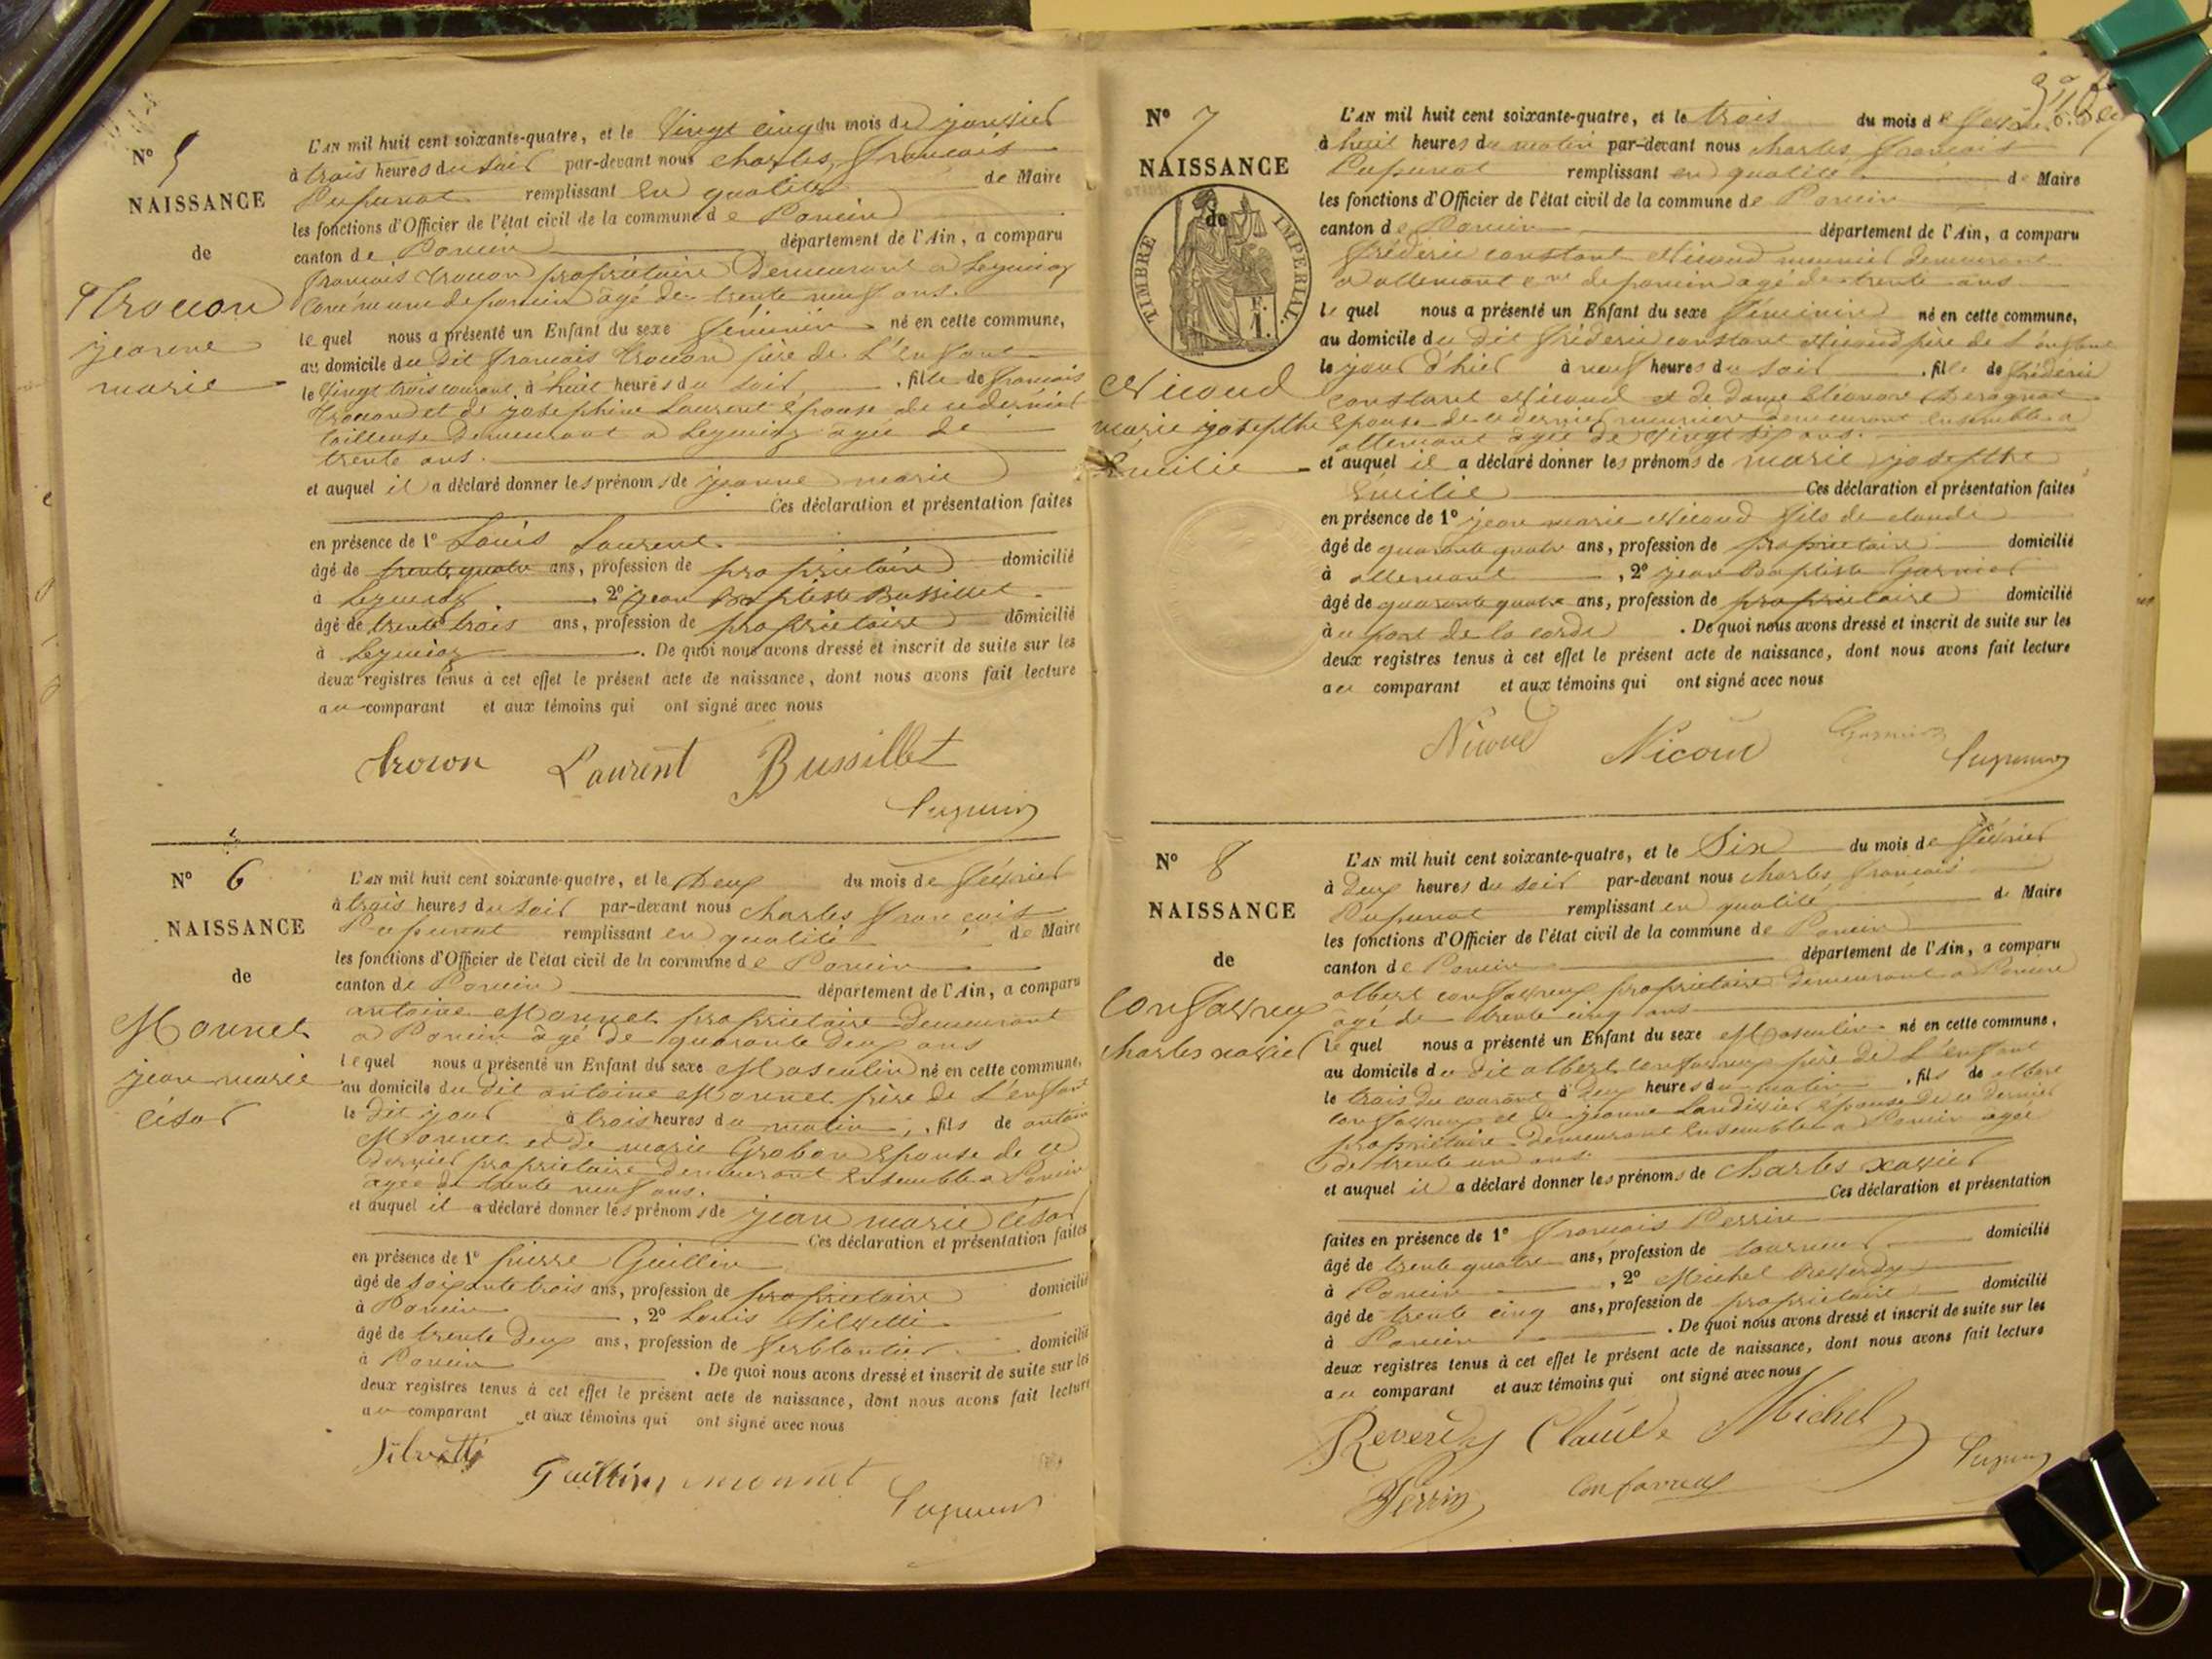 N° 5
NAISSANCE
de
Trocon
jeanne
marie
L'AN mil huit cent soixante-quatre, et le Vingt cinq du mois de janvier
à trois heures du soir par-devant nous charles françois
Pupunat remplissant en qualité de Maire
les fonctions d'Officier de l'état civil de la commune de Poncin
canton de Poncin département de l'Ain, a comparu
françois trocon propriétaire demeurant a Leymiat
commune de poncin âgé de trente neuf ans.
le quel nous a présenté un Enfant du sexe féminin né en cette commune,
au domicile du dit françois trocon père de L'enfant
le Vingt trois courant, à huit heures du soir, fille de françois
trocon et de josephine Laurent épouse de ce dernier
tailleuse demeurant a Leymiat agée de
trente ans.
et auquel il a déclaré donner les prénoms de jeanne marie
Ces déclaration et présentation faites
en présence de 1° Louis Laurent
âgé de trente quatre ans, profession de propriétaire domicilié
à Leymiat, 2° jean Baptiste Bussillet
âgé de trente trois ans, profession de propriétaire domicilié
à Leymiat. De quoi nous avons dressé et inscrit de suite sur les
deux registres tenus à cet effet le présent acte de naissance, dont nous avons fait lecture
au comparant et aux témoins qui ont signé avec nous
trocon Laurent Bussillet
N° 6
NAISSANCE
de
Monnet
jean marie
césar
L'AN mil huit cent soixante-quatre, et le Deux du mois de février
à trois heures du soir par-devant nous charles françois
Pupunat remplissant en qualité de Maire
les fonctions d'Officier de l'état civil de la commune de Poncin
canton de Poncin département de l'Ain, a comparu
antoine Monnet propriétaire demeurant
a Poncin âgé de quarante deux ans
le quel nous a présenté un Enfant du sexe Masculin né en cette commune,
au domicile du dit antoine Monnet père de L'enfant
le dit jour à trois heures du matin, fils de antoine
Monnet et de marie Grobon épouse de ce
dernier propriétaire demeurant ensemble a Poncin
agée de trente neuf ans.
et auquel il a déclaré donner les prénoms de jean marie césar
Ces déclaration et présentation faites
en présence de 1° pierre Guillin
âgé de soixante trois ans, profession de propriétaire domicilié
à Poncin, 2° Louis Silvetti
âgé de trente deux ans, profession de ferblantier domicilié
à Poncin. De quoi nous avons dressé et inscrit de suite sur les
deux registres tenus à cet effet le présent acte de naissance, dont nous avons fait lecture
au comparant et aux témoins qui ont signé avec nous
Silvetti Guillin monnet
N° 7
NAISSANCE
de
TIMBRE IMPERIAL
Nicoud
marie josepthe
Émilie
L'AN mil huit cent soixante-quatre, et le trois du mois de février
à huit heures du matin par-devant nous charles françois
Pupunat remplissant en qualité de Maire
les fonctions d'Officier de l'état civil de la commune de Poncin
canton de Poncin département de l'Ain, a comparu
frédéric constant Nicoud meunier demeurant
a allemant cne de poncin agé de trente ans
le quel nous a présenté un Enfant du sexe féminin né en cette commune,
au domicile du dit frédéric constant Nicoud père de L'enfant
le jour d'hier à neuf heures du soir, fille de frédéric
constant Nicoud et de dame Eléonore
épouse de ce dernier meunière demeurant ensemble a
allemant agée de vingt six ans.
et auquel il a déclaré donner les prénoms de marie josepthe
Émilie Ces déclaration et présentation faites
en présence de 1° jean marie Nicoud fils de claude
âgé de quarante quatre ans, profession de propriétaire domicilié
à allemant, 2° jean Baptiste Garnier
âgé de quarante quatre ans, profession de propriétaire domicilié
à u pont de la corde. De quoi nous avons dressé et inscrit de suite sur les
deux registres tenus à cet effet le présent acte de naissance, dont nous avons fait lecture
au comparant et aux témoins qui ont signé avec nous
Nicoud Nicoud Garnier
N° 8
NAISSANCE
de
Confavreux
charles xavier
L'AN mil huit cent soixante-quatre, et le Six du mois de février
à Deux heures du soir par-devant nous charles françois
Pupunat remplissant en qualité de Maire
les fonctions d'Officier de l'état civil de la commune de Poncin
canton de Poncin département de l'Ain, a comparu
albert confavreux propriétaire demeurant a Poncin
âgé de trente cinq ans
le quel nous a présenté un Enfant du sexe Masculin né en cette commune,
au domicile du dit albert confavreux père de L'enfant
le trois du courant, à Deux heures du matin, fils de albert
confavreux et de jeanne épouse de ce dernier
propriétaire demeurant ensemble a Poncin agée
de trente un ans.
et auquel il a déclaré donner les prénoms de charles xavier
Ces déclaration et présentation
faites en présence de 1° françois Perrin
âgé de trente quatre ans, profession de tourneur domicilié
à Poncin, 2° Michel Reverdy
âgé de trente cinq ans, profession de propriétaire domicilié
à Poncin. De quoi nous avons dressé et inscrit de suite sur les
deux registres tenus à cet effet le présent acte de naissance, dont nous avons fait lecture
au comparant et aux témoins qui ont signé avec nous
Reverdy Claude Michel
Perrin Confavreux